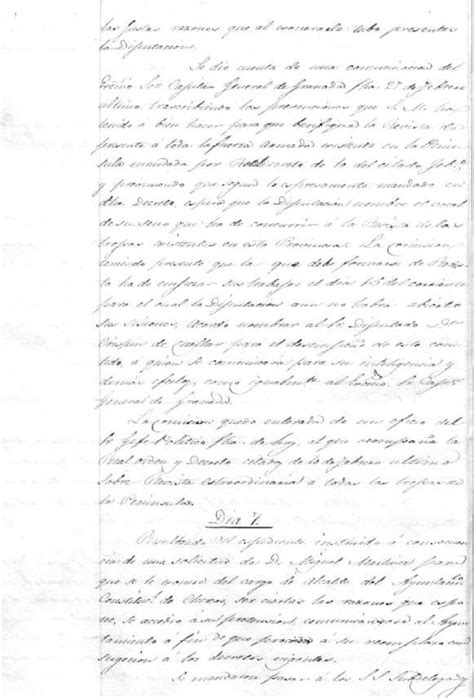 las justas razones que al exonerarle tubo presentes
la Diputacion.
Se dio cuenta de una comunicacion del
Exmo Sor Capitan General de Granada fha. 27 de Febrero
ultimo transcribiendo las prevenciones que S.M. ha
tenido á bien hacer para que se verifique la Revista de
presente á toda la fuerza armada ecsistente en la Penin
sula mandada por Real decreto de 1o del citado Feb.o
y previniendo que segun lo espresamente mandado en
dho. decreto, espera que la Diputacion nombre el vocal
de su seno que ha de concurrir á la Revista de las
tropas ecsistentes en esta Provincia. La Comision
teniendo presente que la que debe formarse de Revis
ta ha de empezar sus trabajos el dia 15 del corriente
para el cual la Diputacion aun no habrá abierto
sus sesiones, Acordó nombrar al Sr. Diputado Dn
Crispin de Cuellar para el desempeño de este come
tido, á quien se comunicará para su inteligencia y
demas efectos, como igualmente al Exmo. Sr. Capitan
General de Granada.
La Comision quedó enterada de un oficio del
Sr Gefe Politico fha. de hoy, al que acompaña la
Real orden y Decreto citado de 1o de Febrero ultimo
sobre Revista estraordinaria á todas las tropas de
la Peninsula.
Dia 7.
Resultando del espediente instruido á consecuen
cia de una solicitud de D. Miguel Martinez para
que se le exonere del cargo de Alcalde del Ayuntam.to
Constitul. de ser ciertas las razones que espo
ne, se accedió á su pretension, comunicandose al Ayun
tamiento á fin de que proceda á su reemplazo con
sugecion á los decretos vigentes.
Se mandaron pasar á los S.S. Subdelegados